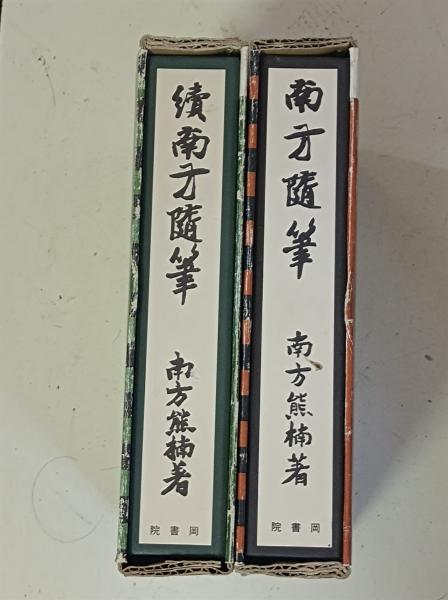 南方隨筆
南方熊楠著
院書岡
續南方隨筆
南方熊楠著
院書岡